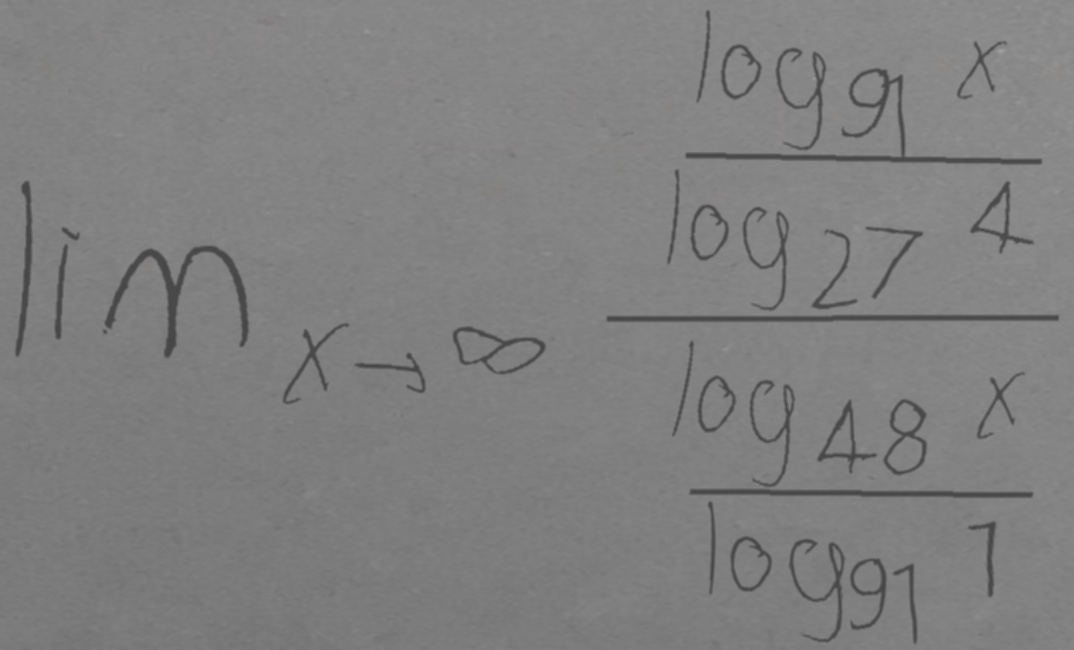 lim x→∞
log 91 x
log 27 4
log 48 x
log 91 1